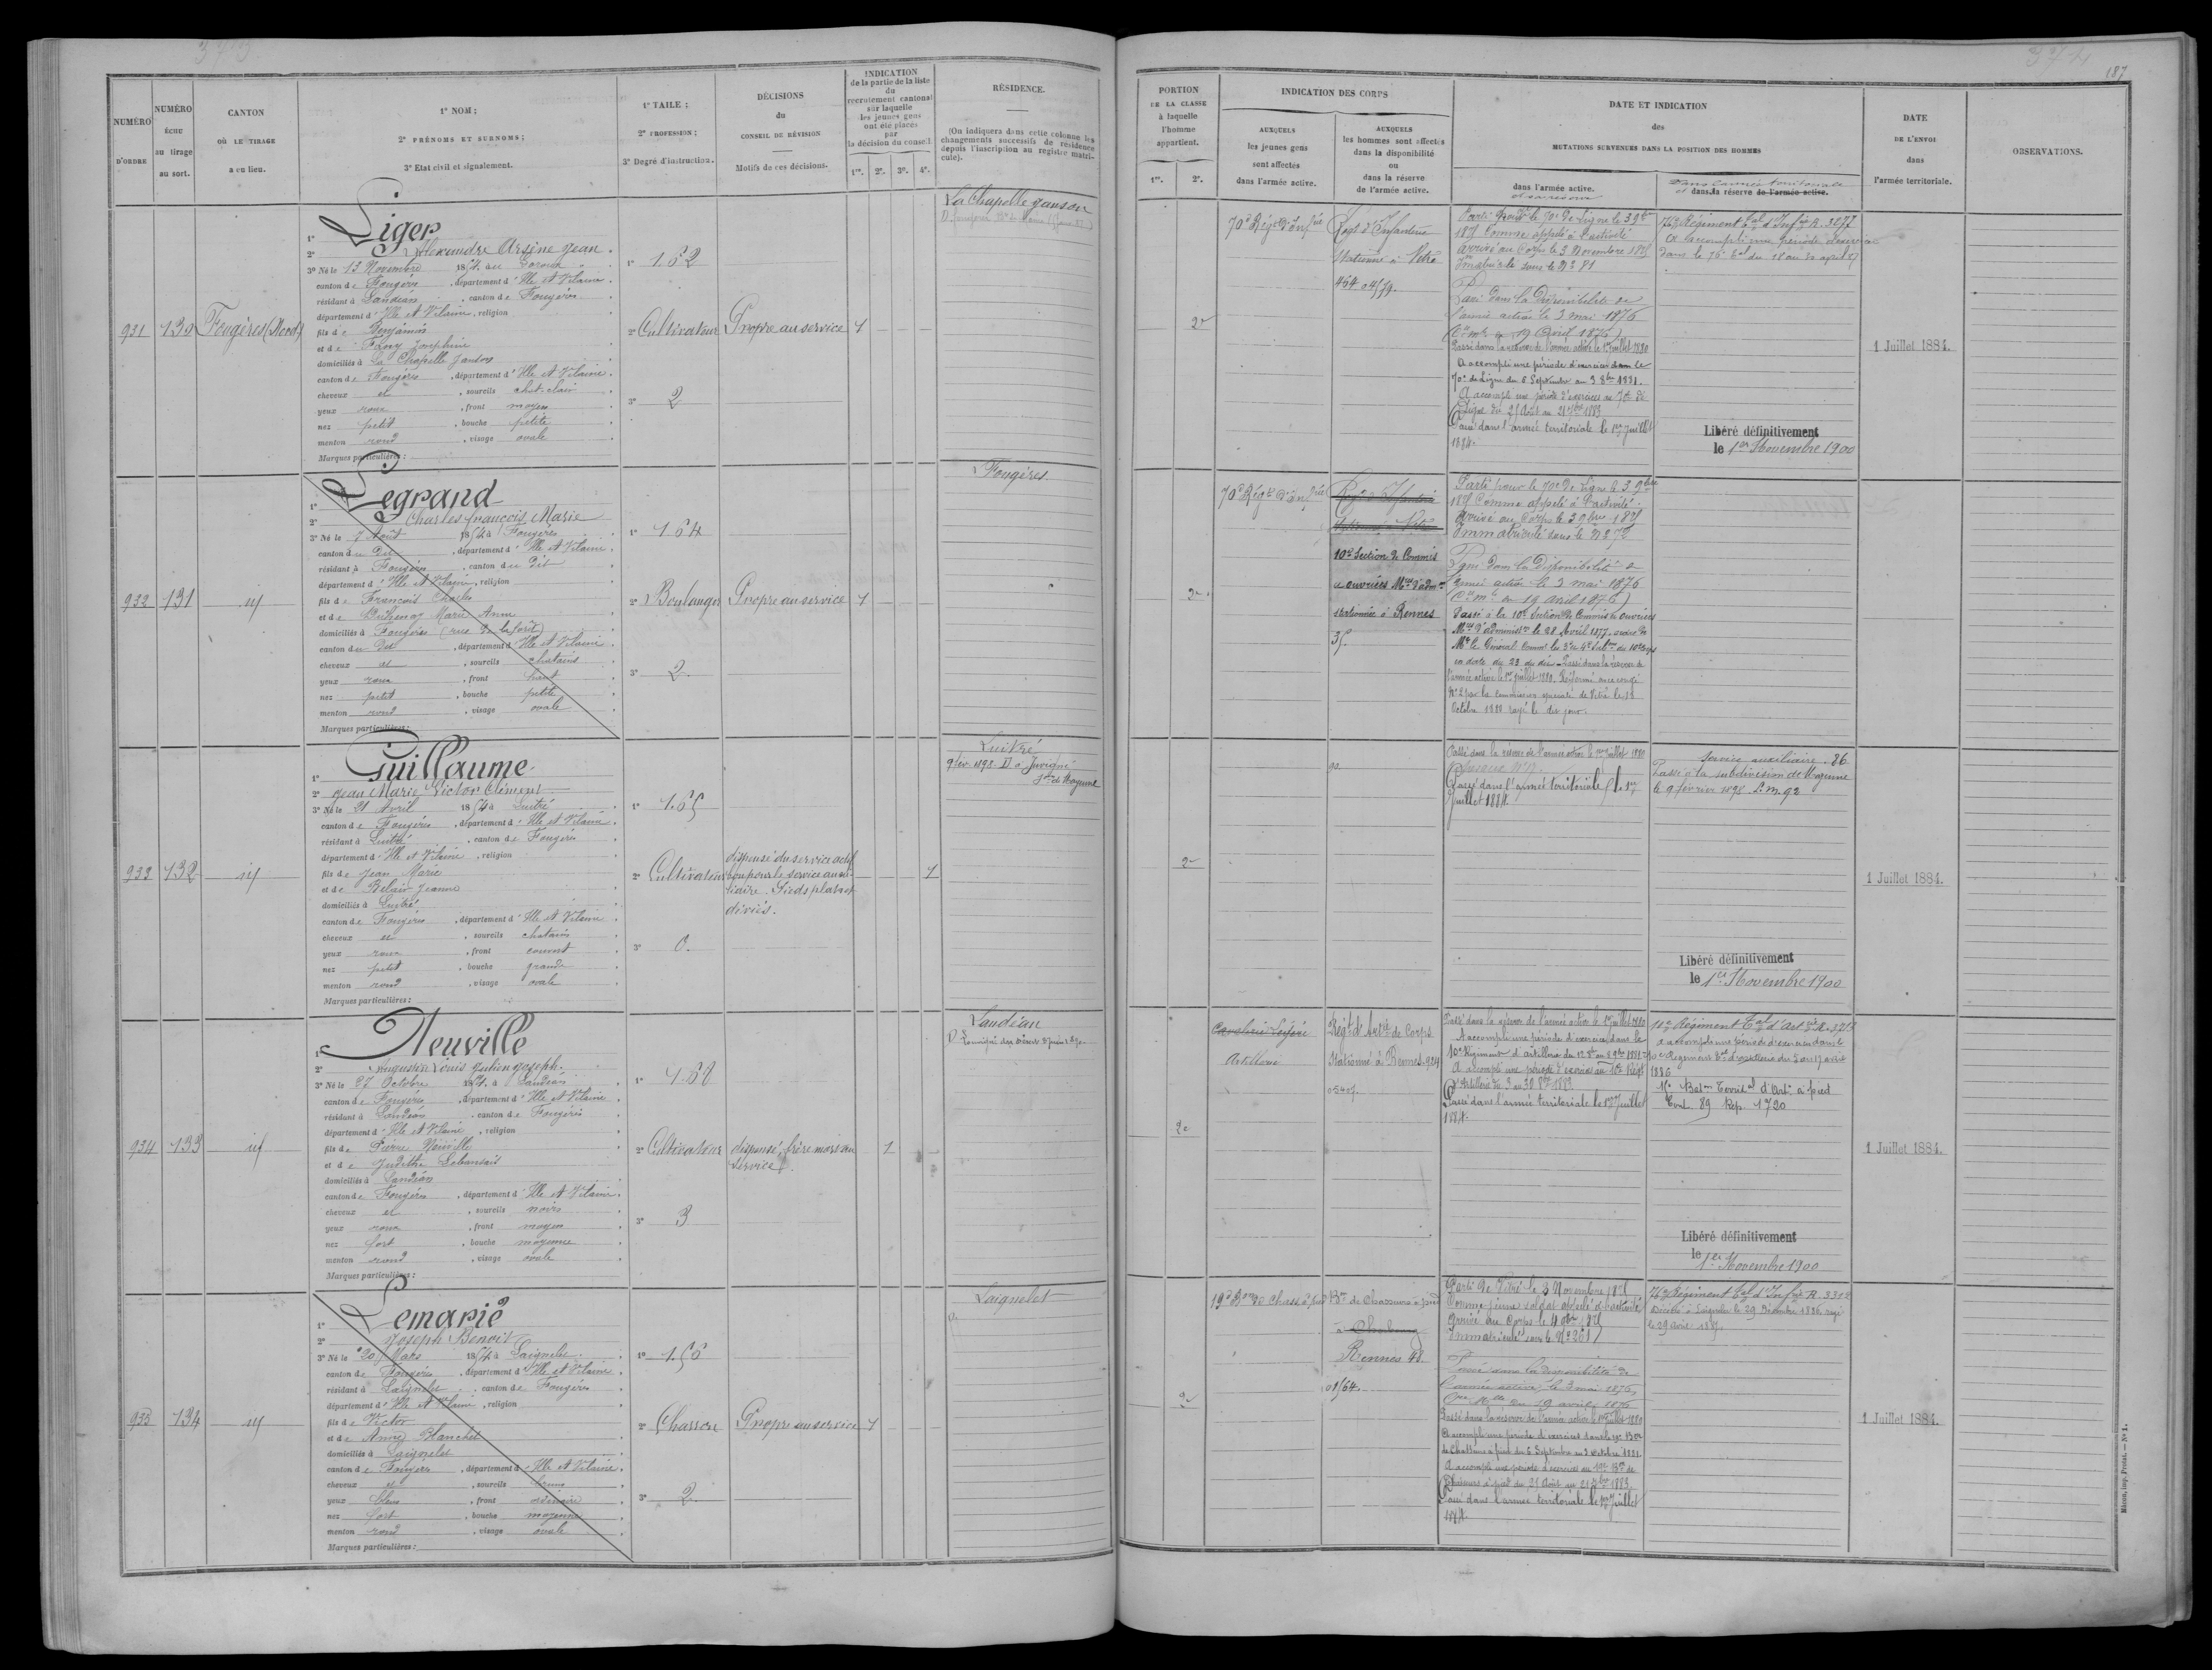 373
NUMÉRO D'ORDRE
NUMÉRO ÉCHU au tirage au sort.
CANTON OÙ LE TIRAGE a eu lieu.
1º NOM;
2º PRÉNOMS ET SURNOMS;
3º Etat civil et signalement.
1º TAILE;
2º PROFESSION;
3º Degré d'instruction.
DÉCISIONS du CONSEIL DE RÉVISION
Motifs de ces décisions.
INDICATION de la partie de la liste du recrutement cantonal sur laquelle les jeunes gens ont été placés par la décision du conseil.
1re. 2e. 3e. 4e.
RÉSIDENCE.
(On indiquera dans cette colonne les changements successifs de résidence depuis l'inscription au registre matricule).
931
130
Fougères (Nord)
1º Liger
2º Alexandre Arsène Jean
3º Né le 13 Novembre 1854 au
canton de Fougères, département d'Ille et Vilaine
résidant à Landéan, canton de Fougères
département d'Ille et Vilaine, religion
fils de Benjamin
et de Fany Joséphine
domiciliés à La Chapelle Janson
canton de Fougères, département d'Ille et Vilaine
cheveux et, sourcils chat. clair
yeux roux, front moyen
nez petit, bouche petite
menton rond, visage ovale
Marques particulières:
1º 1.62
2º Cultivateur
3º 2
Propre au service
1
La Chapelle Janson
932
131
id
1º Legrand
2º Charles François Marie
3º Né le 7 Août 1854 à Fougères
canton du Dit, département d'Ille et Vilaine
résidant à Fougères, canton du Dit
département d'Ille et Vilaine, religion
fils de François Charles
et de Marie Anne
domiciliés à Fougères (rue de la forêt)
canton du Dit, département d'Ille et Vilaine
cheveux et, sourcils chatains
yeux roux, front haut
nez petit, bouche petite
menton rond, visage ovale
Marques particulières:
1º 1.64
2º Boulanger
3º 2
Propre au service
1
Fougères
933
132
id
1º Guillaume
2º Jean Marie Victor Clément
3º Né le 21 Avril 1854 à Luitré
canton de Fougères, département d'Ille et Vilaine
résidant à Luitré, canton de Fougères
département d'Ille et Vilaine, religion
fils de Jean Marie
et de Belair Jeanne
domiciliés à Luitré
canton de Fougères, département d'Ille et Vilaine
cheveux et, sourcils chatains
yeux roux, front couvert
nez petit, bouche grande
menton rond, visage ovale
Marques particulières:
1º 1.65
2º Cultivateur
3º 0.
dispensé du service actif
bon pour le service auxi-
liaire. Pieds plats et
déviés.
1
Luitré
9 fév. 1898. D. à Juvigné
de Mayenne
934
133
id
1º Neuville
2º Augustin Louis Julien Joseph
3º Né le 27 Octobre 1854 à Landéan
canton de Fougères, département d'Ille et Vilaine
résidant à Landéan, canton de Fougères
département d'Ille et Vilaine, religion
fils de Pierre Neuville
et de Judithe
domiciliés à Landéan
canton de Fougères, département d'Ille et Vilaine
cheveux et, sourcils noirs
yeux roux, front moyen
nez fort, bouche moyenne
menton rond, visage ovale
Marques particulières:
1º 1.68
2º Cultivateur
3º 3
dispensé, frère mort au
service
1
Landéan
935
134
id
1º Lemarié
2º Joseph Benoit
3º Né le 20 Mars 1854 à Laignelet
canton de Fougères, département d'Ille et Vilaine
résidant à Laignelet, canton de Fougères
département d'Ille et Vilaine, religion
fils de Victor
et de Anne Blanchet
domiciliés à Laignelet
canton de Fougères, département d'Ille et Vilaine
cheveux et, sourcils bruns
yeux bleus, front ordinaire
nez fort, bouche moyenne
menton rond, visage ovale
Marques particulières:
1º 1.56
2º Charron
3º 2
Propre au service
1
Laignelet
374
187
PORTION DE LA CLASSE à laquelle l'homme appartient.
1re. 2e.
INDICATION DES CORPS
AUXQUELS les jeunes gens sont affectés dans l'armée active.
AUXQUELS les hommes sont affectés dans la disponibilité ou dans la réserve de l'armée active.
DATE ET INDICATION des MUTATIONS SURVENUES DANS LA POSITION DES HOMMES
dans l'armée active.
et sa réserve
Dans l'armée territoriale
et dans la réserve de l'armée active.
DATE DE L'ENVOI dans l'armée territoriale.
OBSERVATIONS.
2e
70e Régt d'Infrie
Régt d'Infanterie
Stationné à Vitré
Parti pour le 70e de Ligne le 3 9bre
1875 Comme appelé à l'activité
Arrivé au Corps le 3 Novembre 1875
Passé dans la Disponibilité de
l'armée active le 3 mai 1876
19 Avril 1876)
Passé dans la réserve de l'armée active le 1er Juillet 1880
A accompli une période d'exercices dans le
70e de Ligne du 6 Septembre au 3 8bre 1881.
A accompli une période d'exercices au 70e de
Ligne du 25 Août au 21 7bre 1883
Passé dans l'armée territoriale le 1er Juillet
1884.
76e Régiment Tal d'Infrie R. 3277
A accompli une période d'exercices
dans le 76e Tal du 18 au 30 avril 87
Libéré définitivement
le 1er Novembre 1900
1 Juillet 1884.
2e
70e Régt d'Infrie
Régt d'Infanterie
Stationné à Vitré
10e Section de Commis
et ouvriers Mres d'admon
stationnée à Rennes
35.
Parti pour le 70e de Ligne le 3 9bre
1875 Comme appelé à l'activité.
Arrivé au Corps le 3 9bre 1875
Passé dans la Disponibilité de
l'armée active le 3 mai 1876
19 avril 1876)
Passé à la 10e Section de Commis et ouvriers
Mres d'administon le 28 Avril 1877, ordre de
Mr le Général
en date du 23 du dit. Passé dans la réserve de
l'armée active le 1er Juillet 1880. Réformé
No 2 par la commission spéciale de Vitré le
Octobre 1880 rayé le dit jour.
2e
Passé dans la réserve de l'armée active le 1er Juillet 1880
Passé dans l'armée territoriale le 1er
Juillet 1884.
Service auxiliaire. 86
Passé à la subdivision de Mayenne
le 9 février 1898 L.m. 92
Libéré définitivement
le 1er Novembre 1900
1 Juillet 1884.
2e
Cavalerie Légère
Artillerie
Régt d'Artie de Corps
Stationné à Rennes. 924
Passé dans la réserve de l'armée active le 1er Juillet 1880
A accompli une période d'exercices dans le
10e Régiment d'artillerie
A accompli une période d'exercices au 10e Régt
d'Artillerie du 3 au 30 8bre 1883
Passé dans l'armée territoriale le 1er Juillet
1884.
a accompli une période d'exercices dans le
1886
Baton Territal d'Artie à pied
Cont. 89 Rep. 1720
Libéré définitivement
le 1er Novembre 1900
1 Juillet 1884.
2e
19e Bon de Chass. à pied
Bon de Chasseurs à pied
à Cherbourg
Rennes 48.
Parti de Vitré le 3 Novembre 1875
Comme jeune soldat appelé à l'activité
Arrivé au Corps le 4 9bre 1875
Passé dans la disponibilité de
l'armée active, le 3 mai 1876,
19 avril 1876
Passé dans la réserve de l'armée active le 1er Juillet 1880
A accompli une période d'exercices dans le 19e Bon
de Chasseurs à pied du 6 Septembre au 3 Octobre 1881.
A accompli une période d'exercices au 19e Bon de
Chasseurs à pied du 25 Août au 21 7bre 1883.
Passé dans l'armée territoriale le 1er Juillet
1884.
76e Régiment Tal d'Infrie R. 3302
Décédé à Laignelet le 29 Décembre 1886 rayé
1 Juillet 1884.
Mâcon, imp. Protat. — No 1.